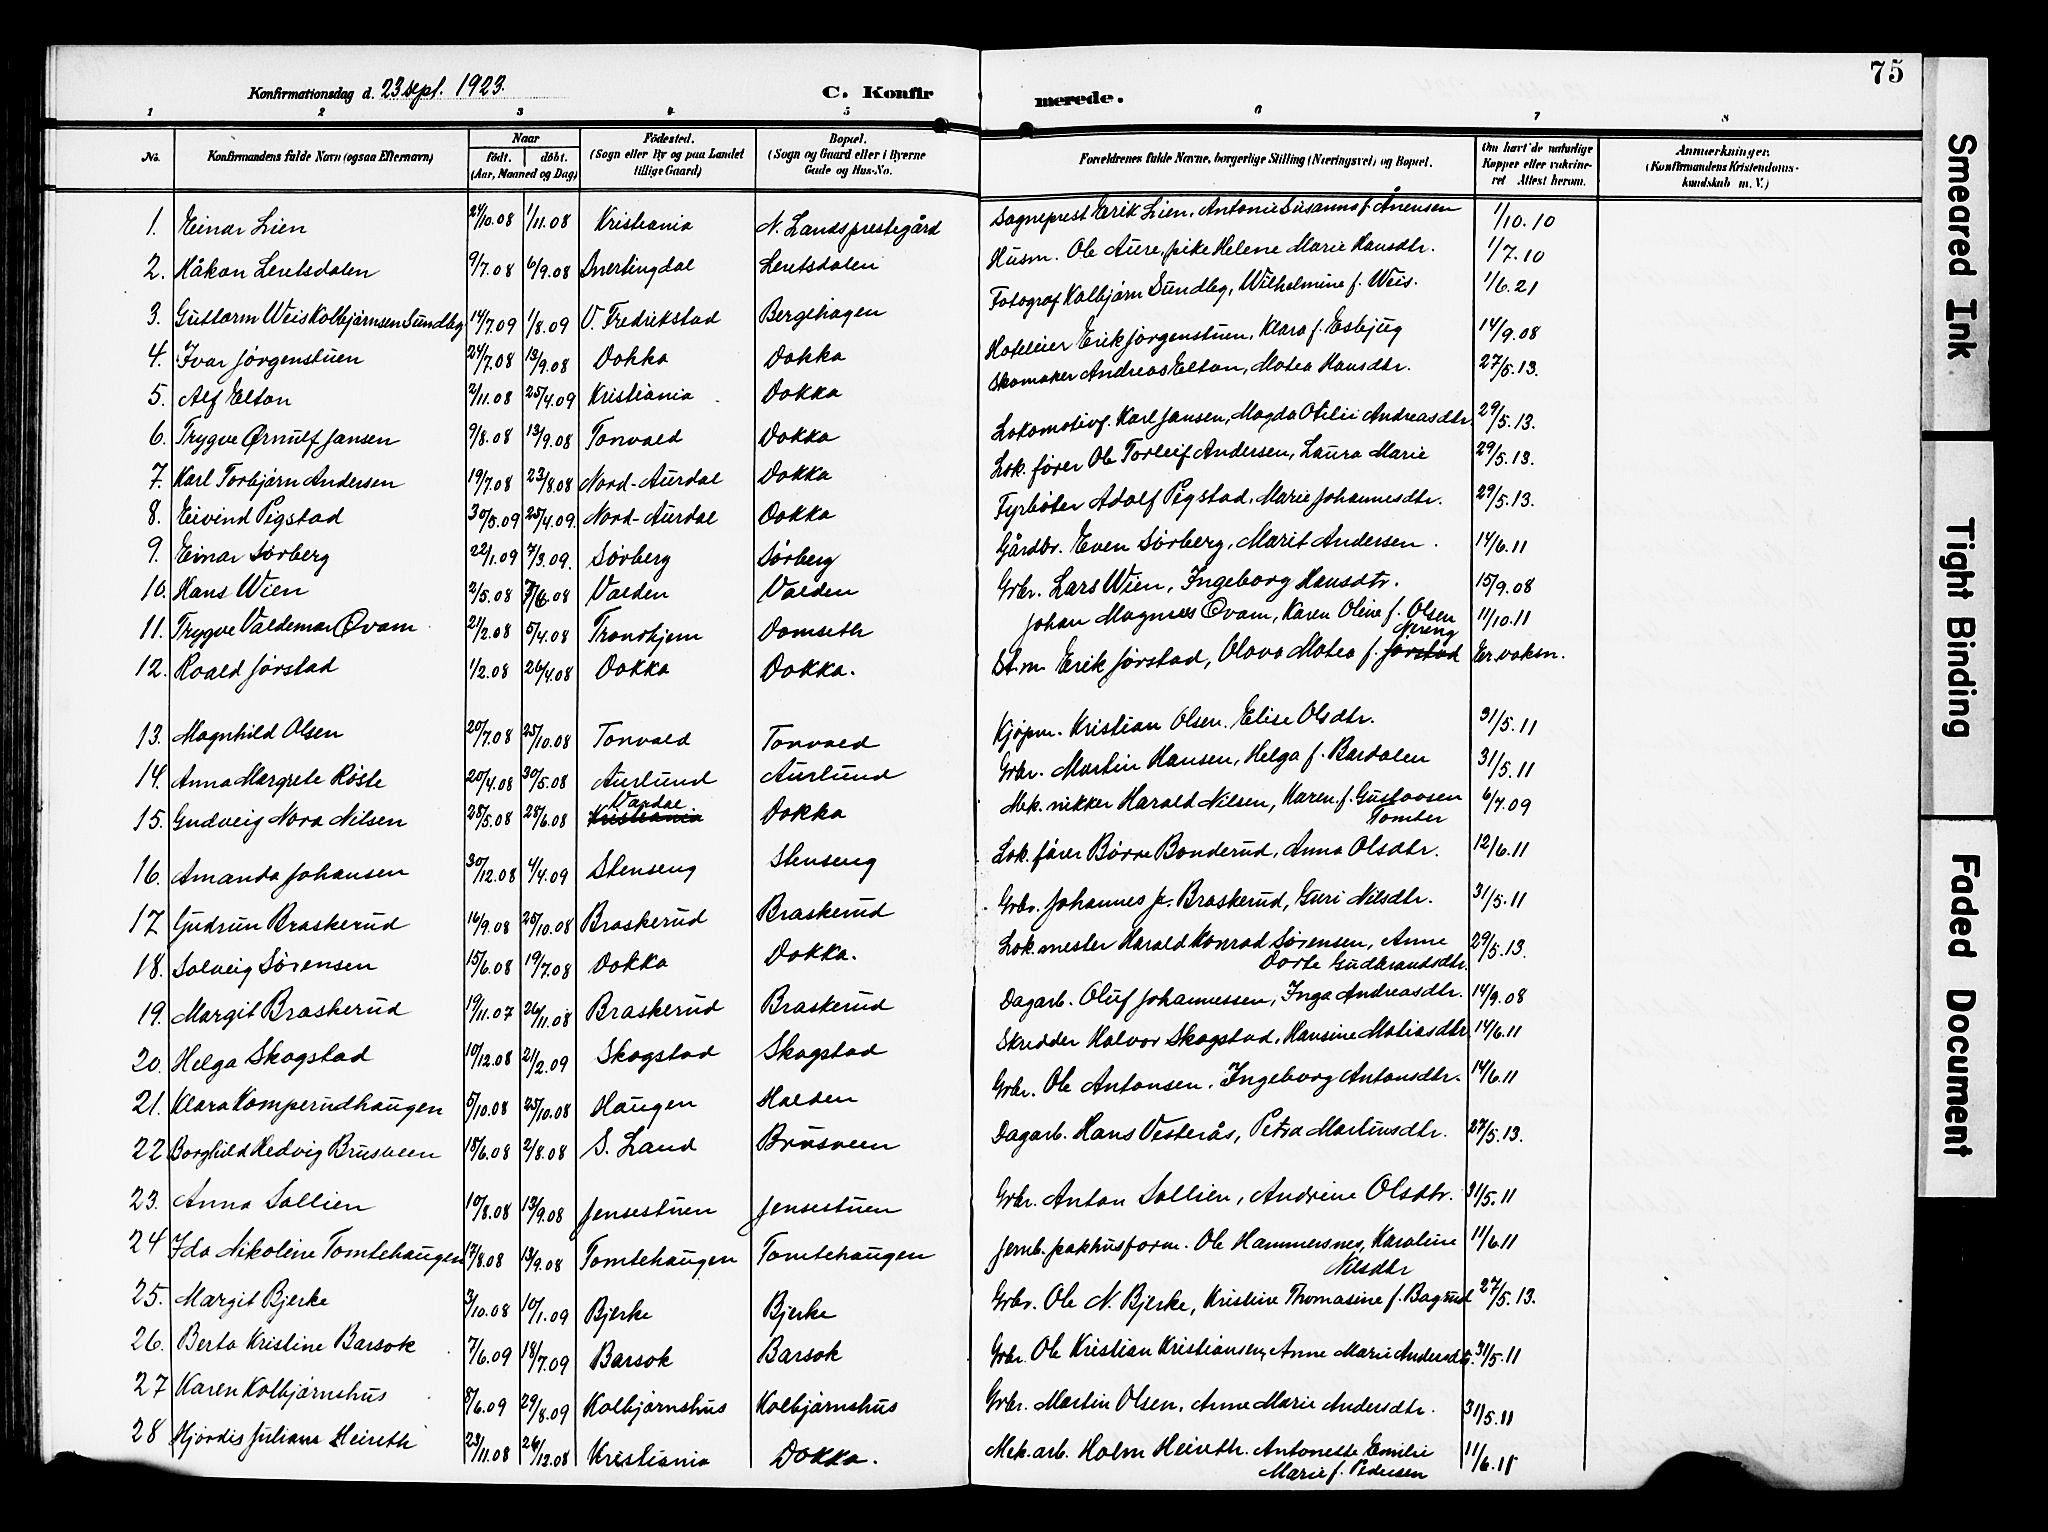 75
Konfirmationsdag d. 23 sept. 1923.
C. Konfirmerede.
1 2 3 4 5 6 7 8
No. Konfirmandens fulde Navn (ogsaa Efternavn) Naar født. døbt. (Aar, Maaned og Dag) Fødested. (Sogn eller By og paa Landet tillige Gaard) Bopæl. (Sogn og Gaard eller i Byerne Gade og Hus-No. Forældrenes fulde Navne, borgerlige Stilling (Næringsvei) og Bopæl. Om havt de naturlige Kopper eller vakcineret Attest herom. Anmærkninger. (Konfirmandens Kristendomskundskab m. V.)
1. Einar Lien 24/10.08 1/11.08 Kristiania N. Landsprestegård Sogneprest Erik Lien, Antonie Susanna f. Ånensen 1/10.10
2. Håkon Lentsdalen 9/7.08 6/9.08 Snertingdal Lentsdalen Husm. Ole Aure, pike Helene Marie Hansdtr. 1/7.10
3. Guttorm Weis Kolbjørnsen Sundby 14/7.09 1/8.09 V. Fredrikstad Bergehagen Fotograf Kolbjørn Sundby, Wilhelmine f. Weis. 1/6.21
4. Ivar Jørgenstuen 24/7.08 13/9.08 Dokka Dokka Hoteleier Erik Jørgenstuen, Klara f. Esbjug 14/9.08
5. Alf Elton 2/11.08 25/4.09 Kristiania Dokka Skomaker Andreas Elton, Matea Hansdtr. 27/5.13.
6. Trygve Ørnulf Jansen 9/8.08 13/9.08 Tonvold Dokka Lokomotivf. Karl Jansen, Magda Otilie Andreasdtr. 29/5.13.
7. Karl Torbjørn Andersen 19/7.08 23/8.08 Nord-Aurdal Dokka Lok. fører Ole Torleif Andersen, Laura Marie 29/5.13.
8. Eivind Pigstad 30/5.09 25/4.09. Nord-Aurdal Dokka Fyrbøter Adolf Pigstad, Marie Johannesdtr. 29/5.13.
9. Einar Sørberg 22/1.09 7/3.09. Sørberg Sørberg Gårdbr. Even Sørberg, Marit Andersen. 14/6.11
10. Hans Wien 2/5.08 7/6.08 Valden Valden Grbr. Lars Wien, Ingeborg Hansdtr. 15/9.08
11. Trygve Valdemar Qvam 21/2.08 5/4.08 Trondhjem Domseth Johan Magnus Qvam, Karen Oline f. Olsen 11/10.11
12. Roald Jørstad 1/2.08 26/4.08 Dokka Dokka. St.m. Erik Jørstad, Olava Matea f. Jørstad Nereng Er vaksn.
13. Magnhild Olsen 20/7.08 25/10.08 Tonvold Tonvold Kjøpm. Kristian Olsen. Elise Olsdtr. 31/5.11
14. Anna Margrete Røste 20/4.08 30/5.08 Aurlund Aurlund Grbr. Martin Hansen, Helga f. Bardalen 31/5.11
15. Gudveig Nora Nilsen 28/5.08 28/6.08 Kristiania Vardal Dokka Mek. nikker Harald Nilsen, Karen f. Gustavsen Tomter 6/7.09
16. Amanda Johansen 30/12.08 4/4.09 Stenseng Stenseng Lok. fører Børre Bonderud, Anna Olsdtr. 12/6.11
17 Gudrun Braskerud 16/9.08 25/10.08 Braskerud Braskerud Grbr. Johannes Jr. Braskerud, Guri Nilsdtr. 31/5.11
18. Solveig Sørensen 15/6.08 19/7.08 Dokka Dokka. Lok. mester Harald Konrad Sørensen, Anne Dorte Gudbrandsdtr. 29/5.13.
19. Margit Braskerud 19/11.07 26/11.08 Braskerud Braskerud Dagarb. Oluf Johannessen, Inga Andreasdtr. 14/9.08
20. Helga Skogstad 10/12.08 21/2.09 Skogstad Skogstad Skredder Halvor Skogstad, Hansine Matiasdtr 14/6.11
21. Klara Komperudhaugen 5/10.08 25/10.08 Haugen Halden Grbr. Ole Antonsen. Ingeborg Antonsdtr. 14/6.11
22 Borghild Hedvig Brusveen 18/6.08 2/8.08 S. Land Brusveen Dagarb. Hans Vesterås, Petra Martinsdtr. 27/5.13.
23. Anna Sollien 10/8.08 13/9.08 Jensestuen Jensestuen Grbr. Anton Sollien, Andrine Olsdtr. 31/5.11
24 Ida Nikoline Tomtehaugen 17/8.08 13/9.08 Tomtehaugen Tomtehaugen Jernb. pakhusform. Ole Hammersnes, Karoline Nilsdtr 11/6.11
25. Margit Bjerke 3/10.08 10/1.09 Bjerke Bjerke Grbr. Ole N. Bjerke, Kristine Thomasine f. Bagrud 27/5.13.
26. Berta Kristine Barsok 7/6.09 18/7.09 Barsok Barsok Grbr. Ole Kristian Kristiansen, Anne Marie Andersdtr. 31/5.11
27 Karen Kolbjørnshus 8/6.09 29/8.09 Kolbjørnshus Kolbjørnshus Grbr. Martin Olsen, Anne Marie Andersdtr. 31/5.11
28 Hjørdis Juliane Heireth 23/11.08 26/12.08 Kristiania Dokka. Mek. arb. Holm Heireth. Antonette Emilie Marie f. Pedersen 11/6.11
Smeared Ink
Tight Binding
Faded Document